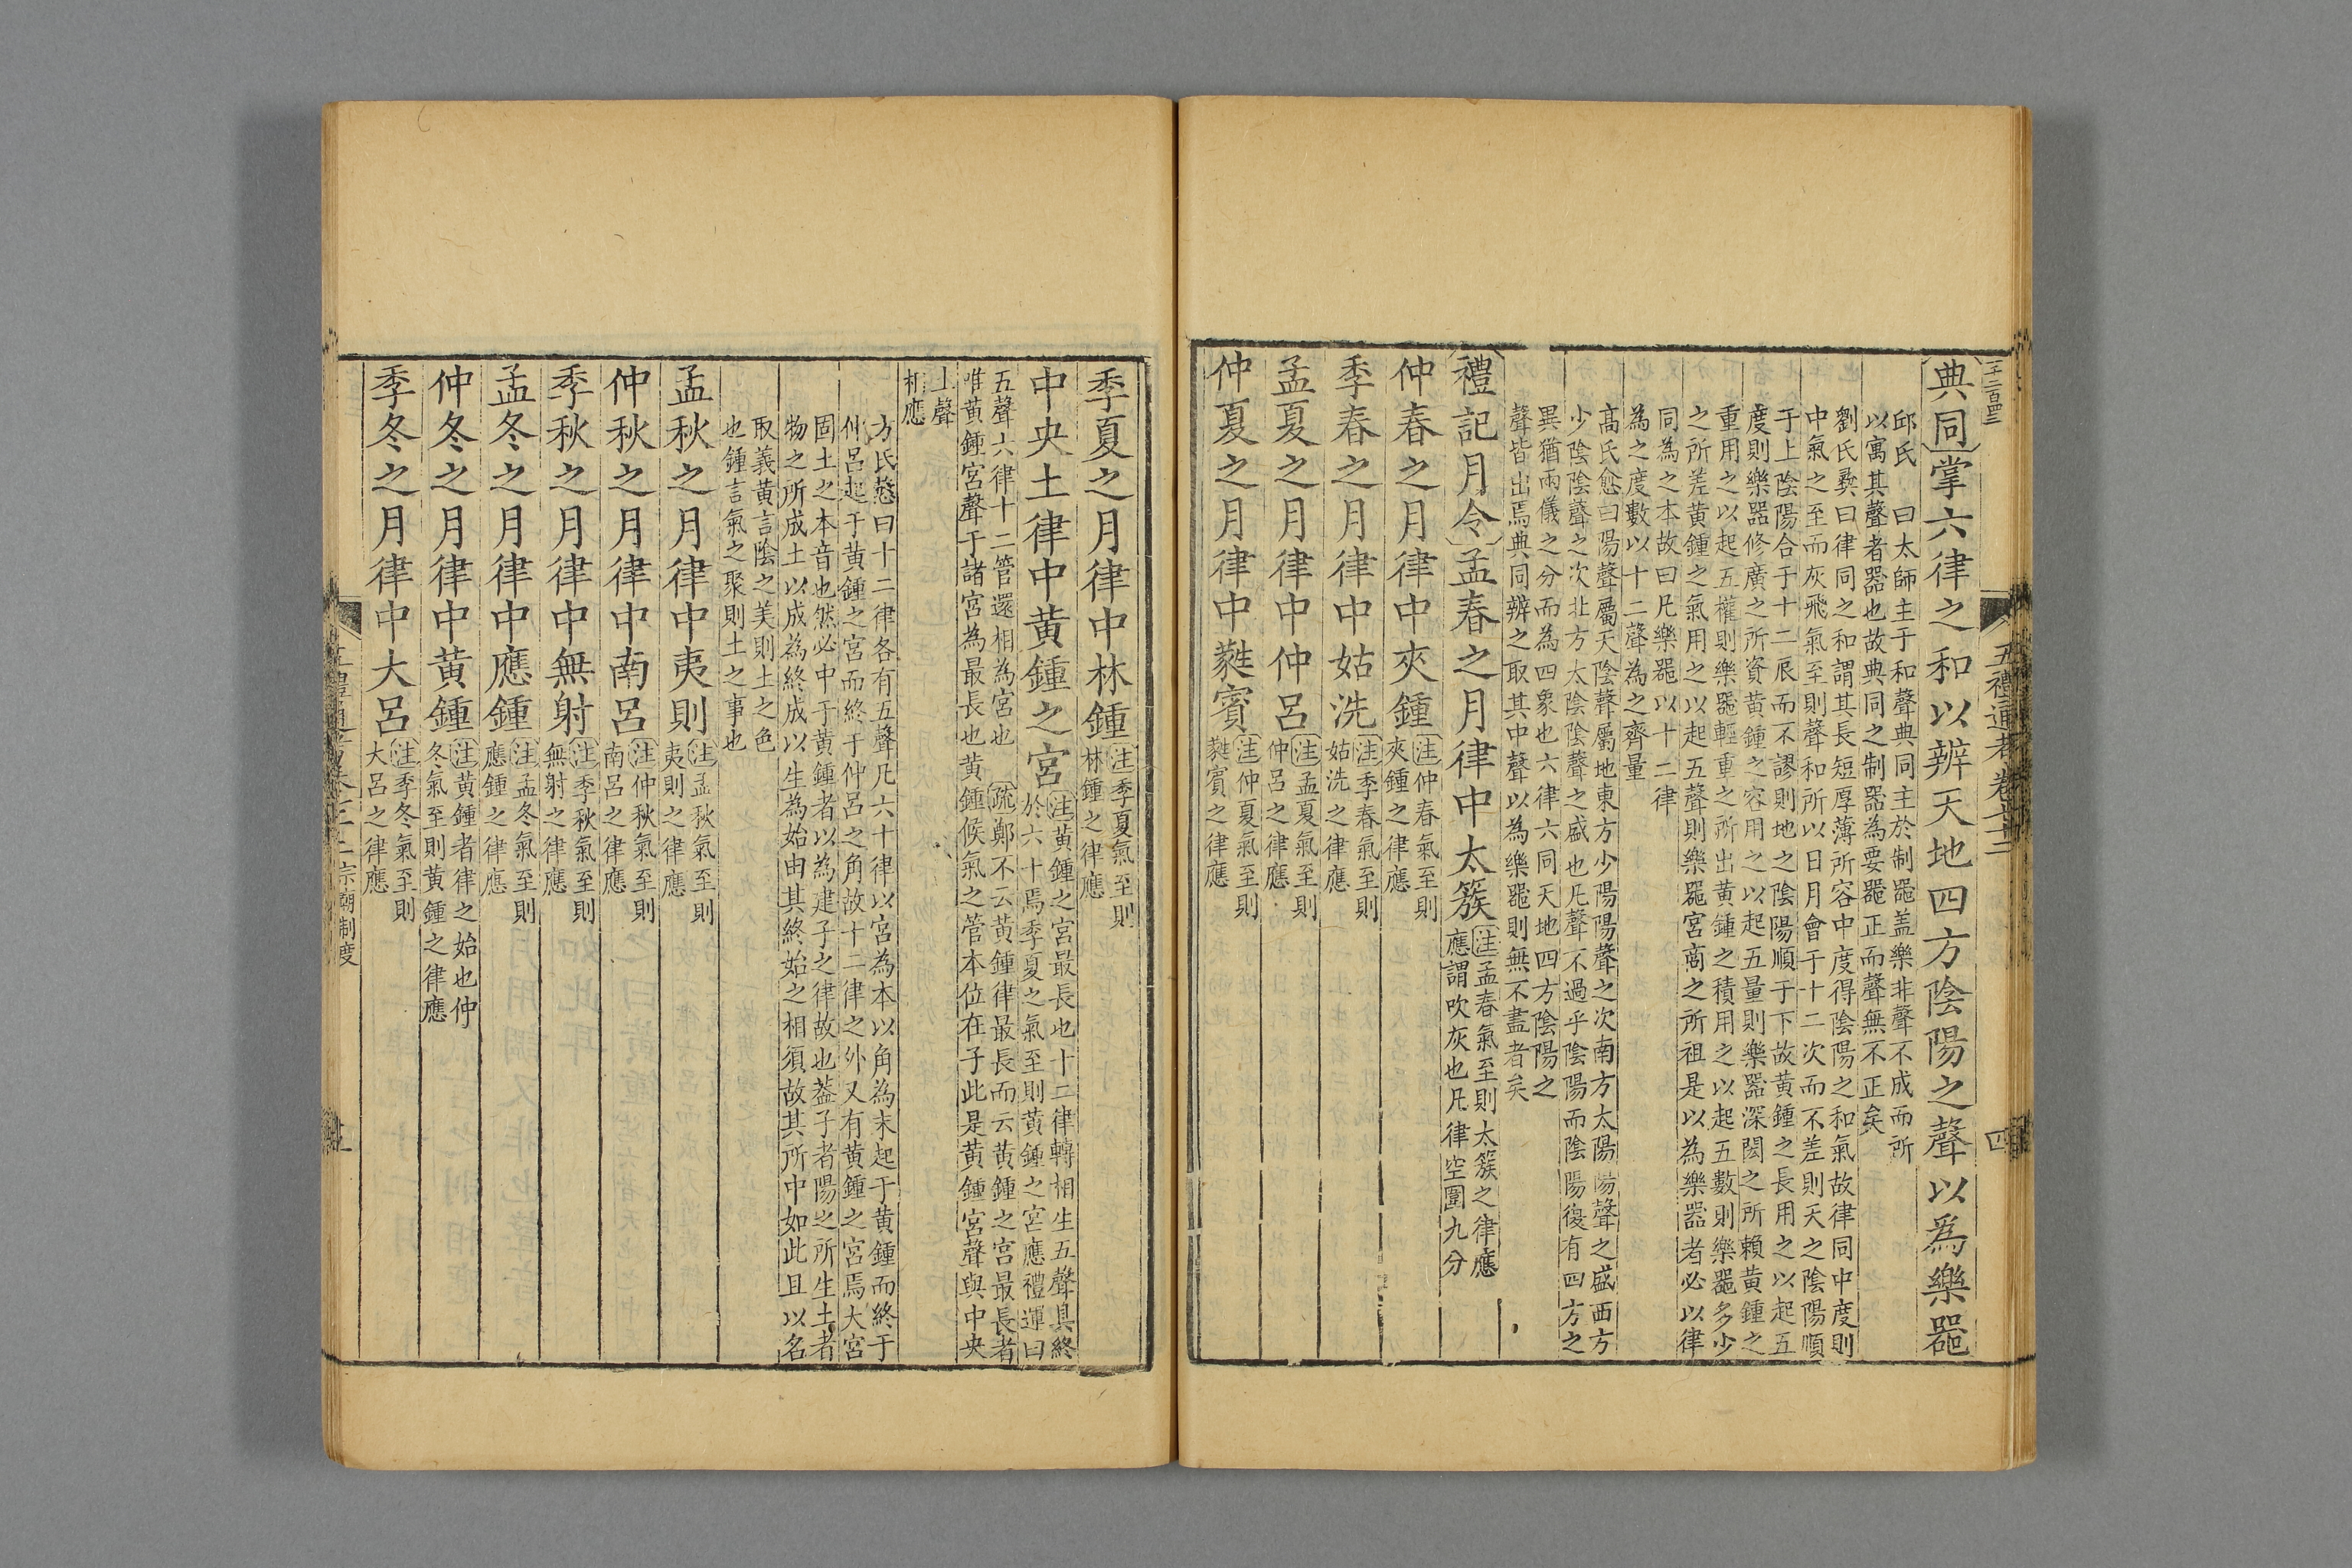 典同掌六律之和以辨天地四方陰陽之聲以爲樂器
邱氏　曰太師主于和聲典同主於制器盖樂非聲不成而所
以寓其聲者器也故典同之制器為要器正而聲無不正矣
劉氏彛曰律同之和謂其長短厚薄所容中度得陰陽之和氣故律同中度則
中氣之至而灰飛氣至則聲和所以日月會于十二次而不差則天之陰陽順
于上陰陽合于十二辰而不謬則地之陰陽順于下故黄鍾之長用之以起五
度則樂器修廣之所資黄鍾之容用之以起五量則樂器深閎之所賴黄鍾之
重用之以起五權則樂器輕重之所出黄鍾之積用之以起五數則樂器多少
之所差黄鍾之氣用之以起五聲則樂器宮商之所祖是以為樂器者必以律
同為之本故曰凡樂器以十二律
為之度數以十二聲為之齊量
髙氏愈曰陽聲屬天陰聲屬地東方少陽陽聲之次南方太陽陽聲之盛西方
少陰陰聲之次北方太陰陰聲之盛也凡聲不過乎陰陽而陰陽復有四方之
異猶兩儀之分而為四象也六律六同天地四方陰陽之
聲皆出焉典同辨之取其中聲以為樂器則無不盡者矣
禮記月令孟春之月律中太簇
注孟春氣至則太簇之律應
應謂吹灰也凡律空圍九分
仲春之月律中夾鍾
注仲春氣至則
夾鍾之律應
季春之月律中姑洗
注季春氣至則
姑洗之律應
孟夏之月律中仲呂
注孟夏氣至則
仲呂之律應
仲夏之月律中蕤賓
注仲夏氣至則
蕤賓之律應
五禮通考卷七十二
四
季夏之月律中林鍾
注季夏氣至則
林鍾之律應
中央土律中黄鍾之宮
注黄鍾之宮最長也十二律轉相生五聲具終
於六十焉季夏之氣至則黄鍾之宮應禮運曰
五聲六律十二管還相為宮也疏鄭不云黄鍾律最長而云黄鍾之宮最長者
唯黄鍾宮聲于諸宮為最長也黄鍾候氣之管本位在子此是黄鍾宮聲與中央
土聲
相應
方氏慤曰十二律各有五聲凡六十律以宮為本以角為末起于黄鍾而終于
仲呂起于黄鍾之宮而終于仲呂之角故十二律之外又有黄鍾之宮焉大宮
固土之本音也然必中于黄鍾者以為建子之律故也葢子者陽之所生土者
物之所成土以成為終成以生為始由其終始之相須故其所中如此且以名
取義黄言陰之美則土之色
也鍾言氣之聚則土之事也
孟秋之月律中夷則
注孟秋氣至則
夷則之律應
仲秋之月律中南呂
注仲秋氣至則
南呂之律應
季秋之月律中無射
注季秋氣至則
無射之律應
孟冬之月律中應鍾
注孟冬氣至則
應鍾之律應
仲冬之月律中黄鍾
注黄鍾者律之始也仲
冬氣至則黄鍾之律應
季冬之月律中大呂
注季冬氣至則
大呂之律應
宗廟制度